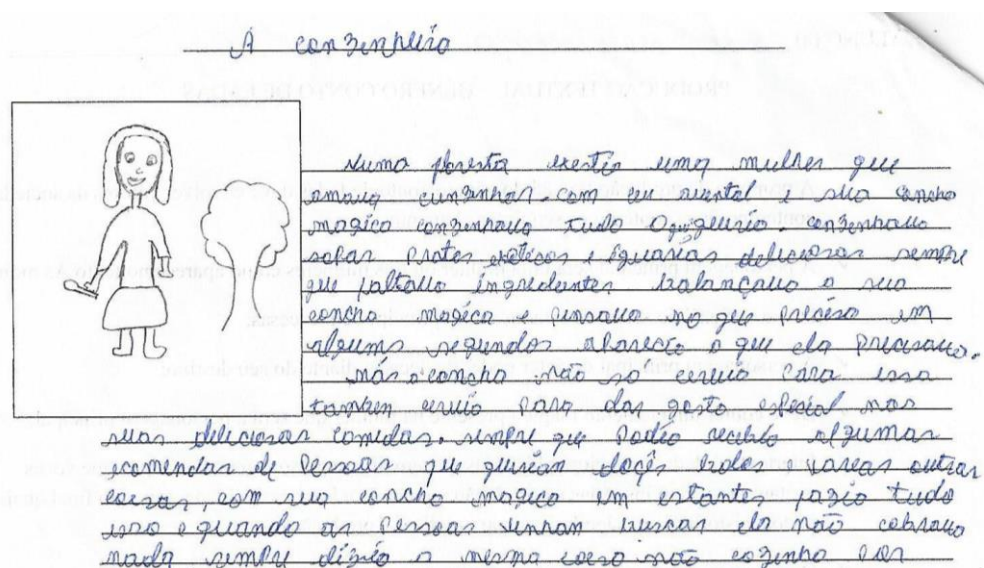 A conzenheira
numa floresta existia uma mulher que
amava cunzinhar. com seu avental e sua concha
magica conzenhava tudo o que queria. conzenhava
sopas pratos exoticos e iguarias deliciosas sempre
que faltava ingredientes balançava a sua
concha magica e pensava no que preciso em
alguns segundos aparecia o que ela precisava.
mas a concha não so cervia para isso
tanben cervia para dar gosto especial nas
suas deliciosas comidas. sempre que podia recebia algumas
encomendas de pessoas que queriam doçes bolos e varias outras
coisas, com sua concha magica em estantes fazia tudo
isso e quando as pessoas vinham buscar ela não cobrava
nada sempre dizia a mesma coisa não cozinho por